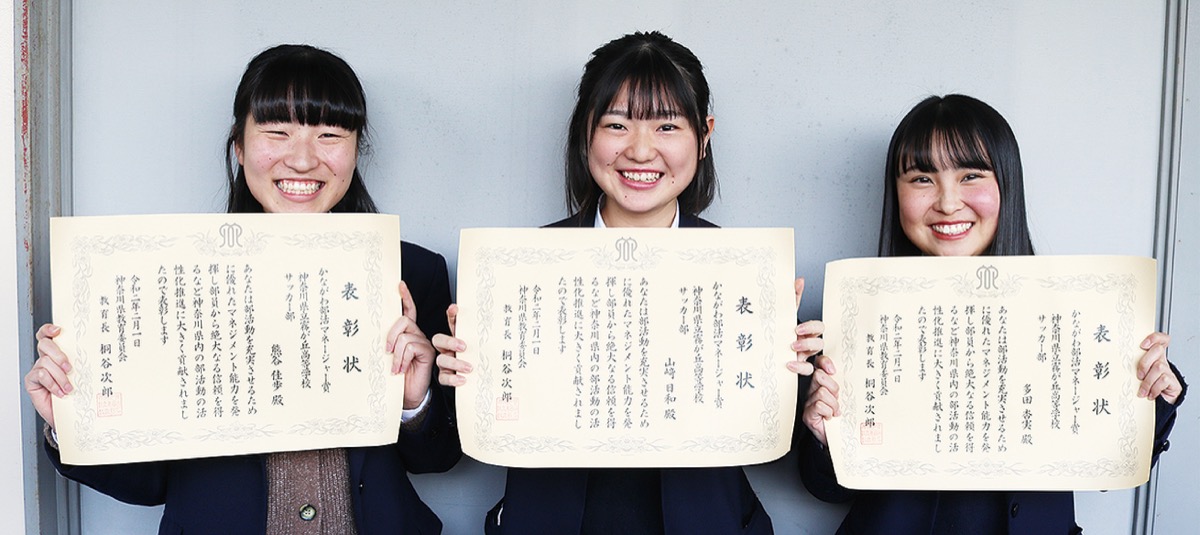 表彰状
かながわ部活マネージャー賞
神奈川県立霧が丘高等学校
サッカー部
熊谷 佳歩 殿
あなたは部活動を充実させるため
に優れたマネジメント能力を発
揮し部員から絶大なる信頼を得
るなど神奈川県内の部活動の活
性化推進に大きく貢献されまし
たので表彰します
令和二年二月一日
神奈川県教育委員会
教育長 桐谷次郎
表彰状
かながわ部活マネージャー賞
神奈川県立霧が丘高等学校
サッカー部
山﨑 日和 殿
あなたは部活動を充実させるため
に優れたマネジメント能力を発
揮し部員から絶大なる信頼を得
るなど神奈川県内の部活動の活
性化推進に大きく貢献されまし
たので表彰します
令和二年二月一日
神奈川県教育委員会
教育長 桐谷次郎
表彰状
かながわ部活マネージャー賞
神奈川県立霧が丘高等学校
サッカー部
多田 杏実 殿
あなたは部活動を充実させるため
に優れたマネジメント能力を発
揮し部員から絶大なる信頼を得
るなど神奈川県内の部活動の活
性化推進に大きく貢献されまし
たので表彰します
令和二年二月一日
神奈川県教育委員会
教育長 桐谷次郎